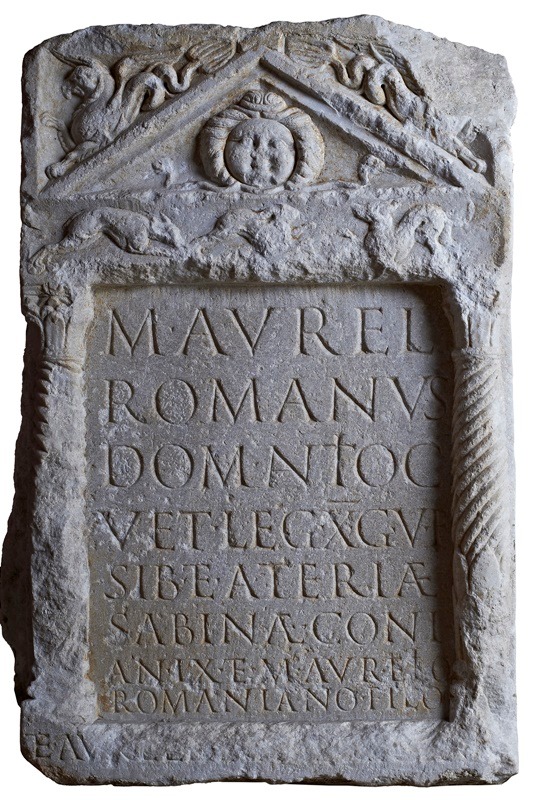 M·AVREL
ROMANVS
DOM·NTOC
VET·LEG·X·G·V·F
SIB·E·ATERIÆ
SABINÆ·CONI
AN·LX·E·M·AVRELO
ROMANIANO·FILO
E·AV